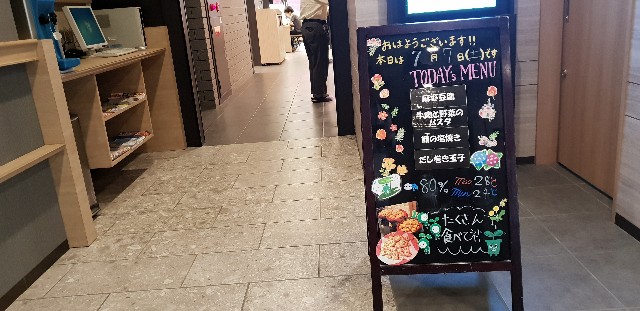 おはようございます!!
本日は 7月7日(土)です
TODAY's MENU
麻婆豆腐
牛肉と野菜の
パスタ
鯖の塩焼き
だし巻き玉子
80% Max 28℃
Min 24℃
たくさん
食べてネ!